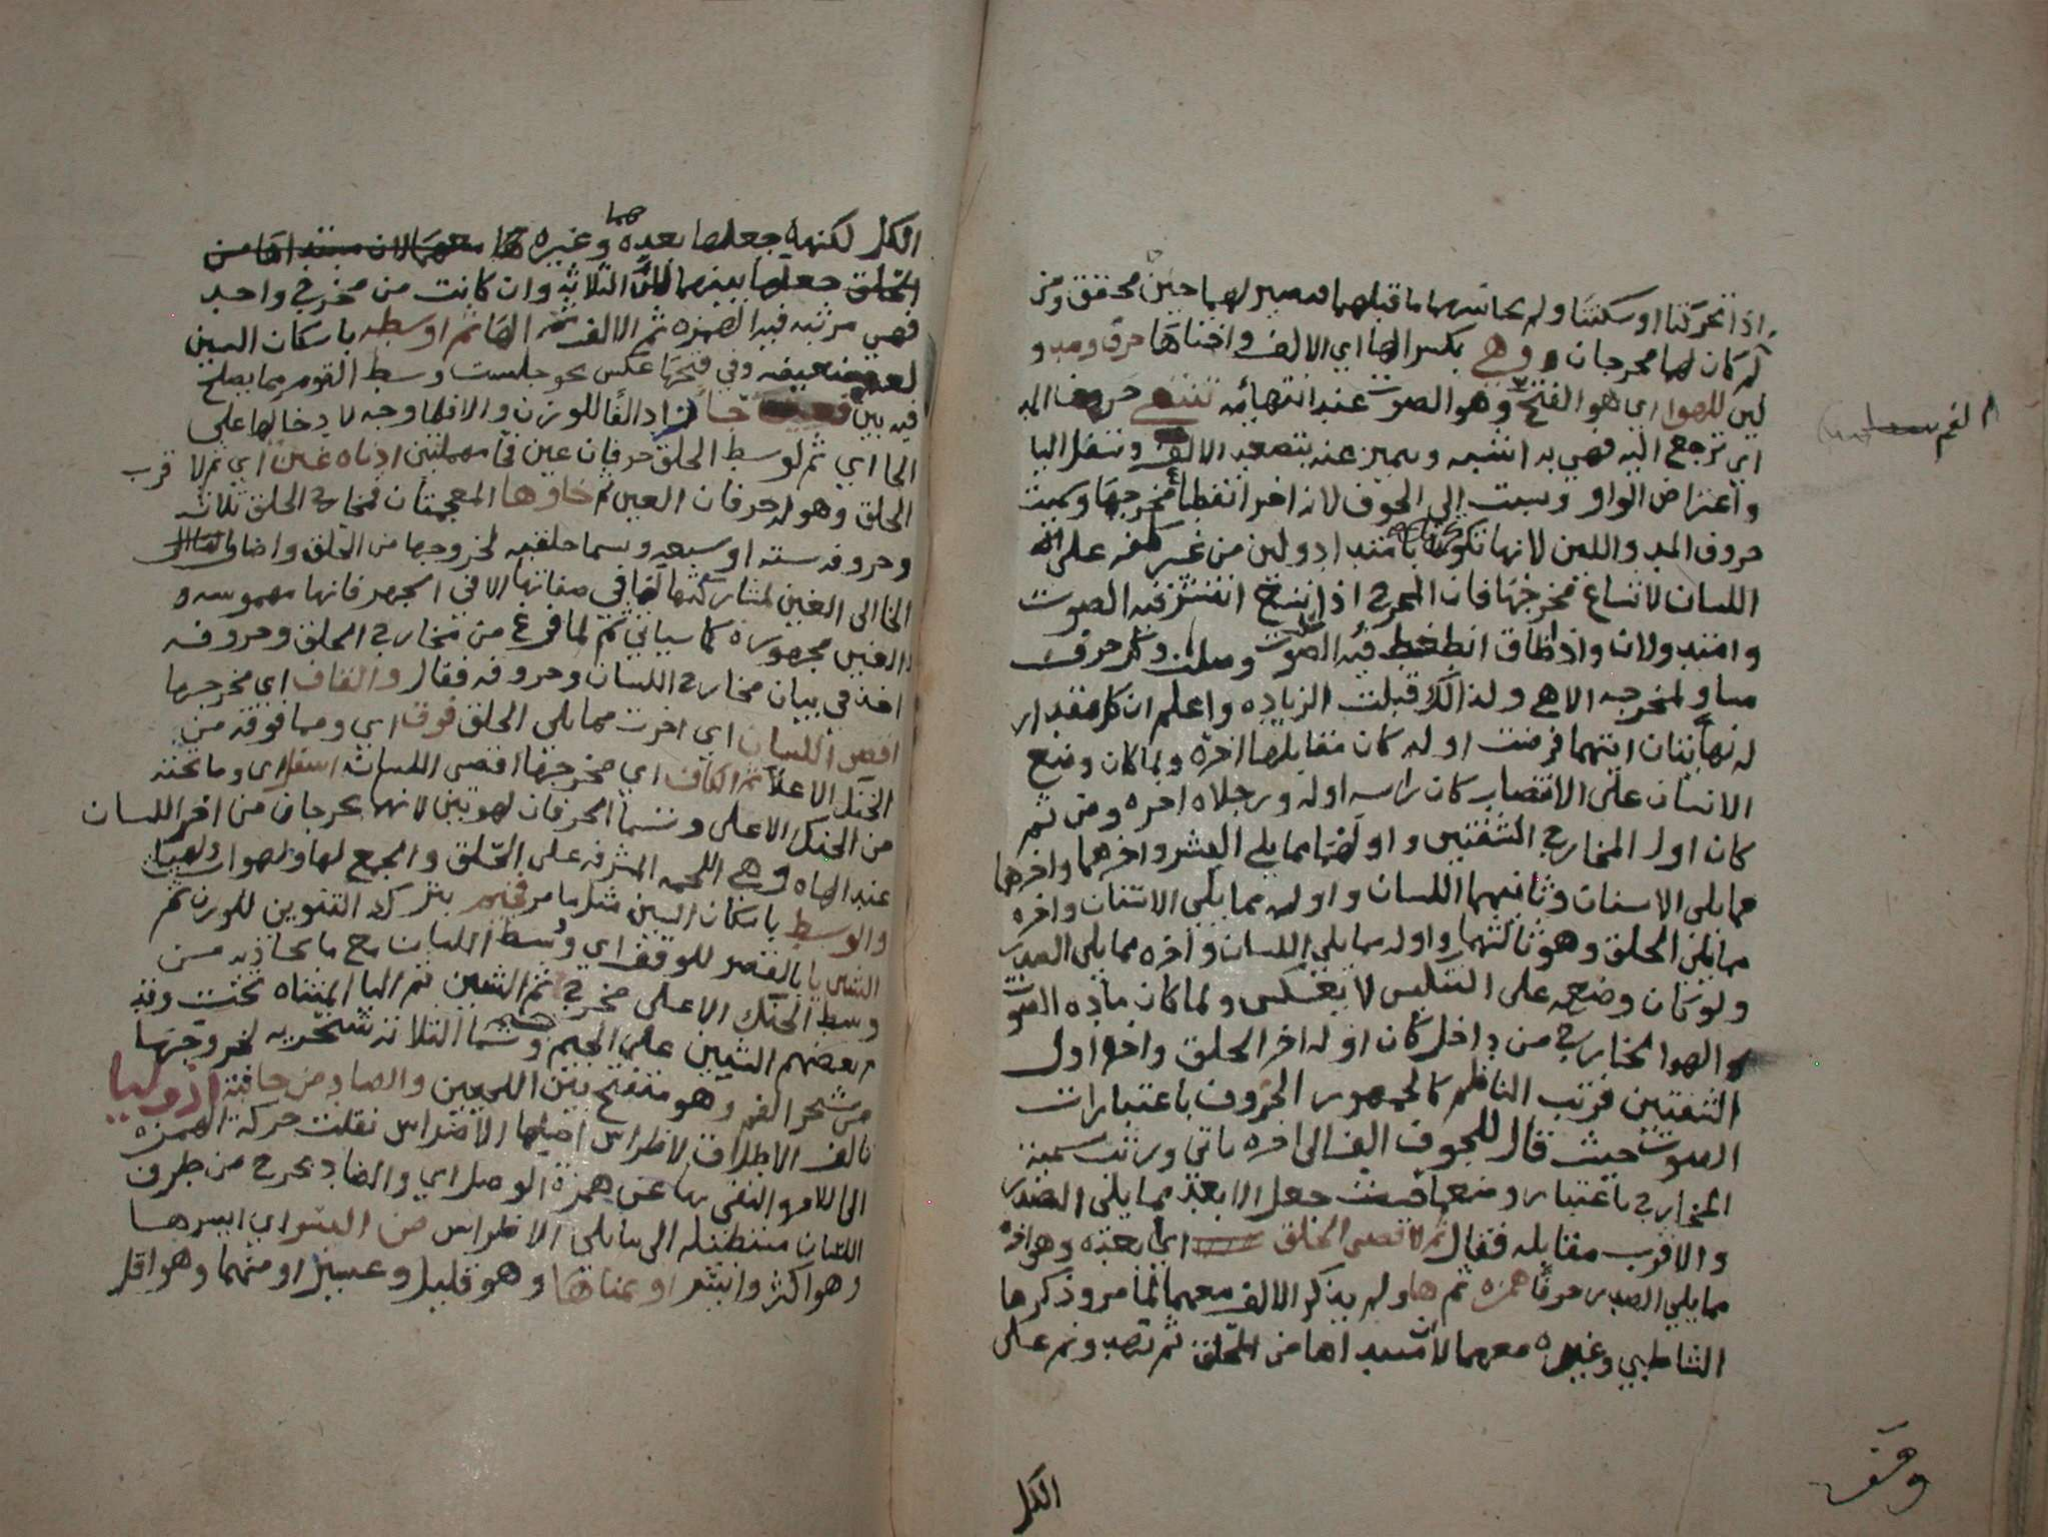 اذا تحركتا او سكنتا ولم يجانسهما ما قبلهما فيصير لهما حين محقق ومن
ثم كان لهما مخرجان وهي بكسر الها اي الالف واختاها حروف مد و
لين للهوا اي هو الفتح وهو الصوت عند انتهائه تنتهي حروف المد
اي ترجع اليه فهي به اشبه ويميز عنه بتصعد الالف وتسفل اليا
الفم
واعتراض الواو ونسبت الى الجوف لانه اخر انقطاع مخرجها وسميت
حروف المد واللين لانها تكون بامتداد ولين من غير كلفه على
اللسان لاتساع مخرجها فان المخرج اذا اتسع انتشر فيه الصوت
وامتد ولان واذا ضاق انضغط فيه الصوت وصلب وكل حرف
مساو لمخرجه الا هي ولذلك قبلت الزياده واعلم ان كل مقدار
له نهايتان ايتهما فرضت اوله كان مقابلها اخره ولما كان وضع
الانسان على الانتصاب كان راسه اوله ورجلاه اخره ومن ثم
كان اول المخارج الشفتين واولهما مما يلي البشر واخرهما
مما يلي الاسنان وثانيهما اللسان واوله مما يلي الاسنان واخره
مما يلي الحلق وهو ثالثهما واوله مما يلي اللسان واخره مما يلي الصدر
ولو كان وضعه على التنكيس لانعكس ولما كان ماده الصوت
الهوا الخارج من داخل كان اوله اخر الحلق واخره اول
الشفتين فرتب الناظم كالجمهور الحروف باعتبار
الصوت حيث قال للجوف الف الى اخره ياتي ورتب تسمية
المخارج باعتبار وضعها حيث جعل الابعد مما يلي الصدر
والاقرب مقابله فقال ثم لاقصى الحلق اي ابعده وهو اخره
مما يلي الصدر حرفا همزه ثم ها ولم يذكر الالف معهما لما مر وذكرها
الشاطبي وغيره معهما لان مبداها من الحلق ثم تمد وتمر على
الكل
وقف
الكل لكنه جعلها بعدهما وغيره
الحلق جعلها بينهما الثلاثه وان كانت من مخرج واحد
فهي مرتبه فيه الهمزه ثم الالف ثم الها ثم اوسطه باسكان السين
لغه ضعيفه وفي فتحها عكس نحو جلست وسط القوم مما يصلح
فيه بين فعين حا زاد الفا للوزن والا فلا وجه لادخالها على
الحا اي ثم لوسط الحلق حرفان عين فحا مهملتين ادناه غين اي ثم لا قرب
الحلق وهو له حرفان الغين ثم خاوها المعجمتان فمخارج الحلق ثلاثه
وحروفه سته او سبعه وتسما حلقيه لخروجها من الحلق واضاف
الخا الى الغين لمشاركتها لها في صفاتها الا في الجهر فانها مهموسه و
الغين مجهوره كما سياتي ثم لما فرغ من مخارج الحلق وحروفه
اخذ في بيان مخارج اللسان وحروفه فقال والقاف اي مخرجها
اقصى اللسان اي اخره مما يلي الحلق فوق اي وما فوقه من
الحنك الاعلا ثم الكاف اي مخرجها اقصى اللسان اسفل اي وما تحته
من الحنك الاعلى وتسما الحرفان لهويتين لانهما يخرجان من اخر اللسان
عند اللهاه وهي اللحمه المشرفه على الحلق والجمع لها ولهوات
والوسط باسكان السين مثل ما مر فجيم بترك التنوين للوزن ثم
الشين يا بالقصر للوقف اي وسط اللسان مع ما يحاذيه من
وسط الحنك الاعلى مخرج ثم الشين ثم اليا المثناه تحت وقد
بعضهم الشين على الجيم وتسما الثلاثه شجريه لخروجها
من شجر الفم وهو منفتح بين اللحيين والضاد من حافته اذ وليا
بالف الاطلاق لاضراس اصلها الاضراس نقلت حركة الهمزه
الى اللام واكتفي بها عن همزة الوصل اي والضاد تخرج من طرف
اللسان مستطيله الى ما يلي الاضراس من ايسر اي ايسرها
وهو اكثر وايسر او يمناها وهو قليل وعسير او منهما وهو اقل